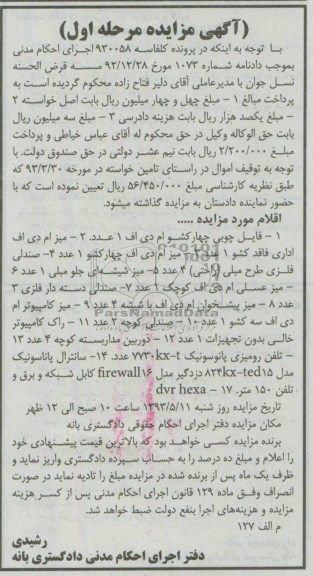 (آگهی مزایده مرحله اول)
با توجه به اینکه در پرونده کلاسه ۹۳۰۰۵۸ اجرای احکام مدنی
بموجب دادنامه شماره ۱۰۷۳ مورخ ۹۲/۱۲/۲۸ قرض الحسنه
نسل جوان با مدیرعاملی آقای دلیر فتاح زاده محکوم گردیده است به
پرداخت مبالغ ۱ - مبلغ چهل و چهار میلیون ریال بابت اصل خواسته ۲
- مبلغ یکصد هزار ریال بابت هزینه دادرسی ۳ - مبلغ سه میلیون ریال
بابت حق الوکاله وکیل در حق محکوم له آقای عباس خیاطی و پرداخت
مبلغ ۲/۲۰۰/۰۰۰ ریال بابت نیم عشر دولتی در حق صندوق دولت. با
توجه به توقیف اموال در راستای تامین خواسته در مورخه ۹۳/۳/۳۰ که
طبق نظریه کارشناسی مبلغ ۵۶/۴۵۰/۰۰۰ ریال تعیین نموده است که با
حضور نماینده دادستان به مزایده گذاشته میشود.
اقلام مورد مزایده .....
۱ - فایل چوبی چهارکشو ام دی اف ۱ عدد. ۲ - میز ام دی اف
اداری فاقد کشو ۱ عدد ۳- میز ام دی اف چهارکشو ۱ عدد ۴- صندلی
فلزی طرح مبلی (راحتی) ۴ عدد ۵- میز شیشه‌ای جلو مبلی ۱ عدد ۶
- میز عسلی ام دی اف کوچک ۱ عدد ۷- صندلی دسته دار فلزی ۳
عدد ۸ - میز پیشخوان ام دی اف با شیشه ۴ عدد ۹ - میز کامپیوتر ام
دی اف سه کشو ۱ عدد ۱۰ - صندلی کوچه ۲ عدد ۱۱ - راک کامپیوتر
خالی بدون تجهیزات ۱ عدد ۱۲ - دوربین مداربسته کوچه ۴ عدد ۱۳
- تلفن رومیزی پانوسونیک ۷۷۳۰kx-t عدد. ۱۴- سانترال پاناسونیک
مدل ۸۲۴kx-ted۱۵ دزدگیر مدل firewall۱۶ کابل شبکه و برق و
تلفن ۱۵۰ متر. ۱۷ - dvr hexa
تاریخ مزایده روز شنبه ۱۳۹۳/۵/۱۱ ساعت ۱۰ صبح الی ۱۲ ظهر
مکان مزایده دفتر اجرای احکام حقوقی دادگستری بانه
برنده مزایده کسی خواهد بود که بالاترین قیمت پیشنهادی خود
را اعلام و مبلغ ده درصد را به حساب سپرده دادگستری واریز نماید و
ظرف یک ماه پس از برنده شده در مزایده مبلغ را تادیه نماید در صورت
انصراف وفق ماده ۱۲۹ قانون اجرای احکام مدنی پس از کسر هزینه
مزایده و هزینه‌های اجرا بنفع دولت ضبط خواهد شد.
م الف ۱۲۷
رشیدی
دفتر اجرای احکام مدنی دادگستری بانه
ParsNamadData